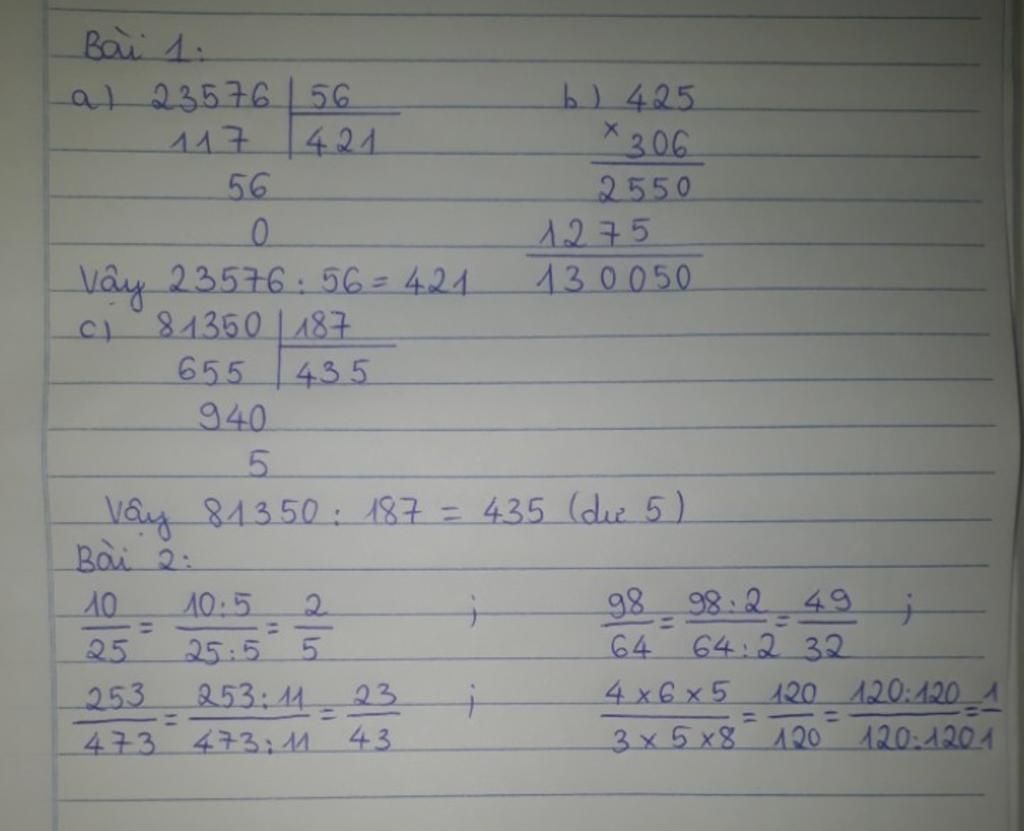 Bài 1:
a) 23576 | 56 b) 425
117 | 421 × 306
56 2550
0 1275
Vậy 23576 : 56 = 421 130050
c) 81350 | 187
655 | 435
940
5
Vậy 81350 : 187 = 435 (dư 5)
Bài 2:
10/25 = 10:5/25:5 = 2/5 ; 98/64 = 98:2/64:2 = 49/32 ;
253/473 = 253:11/473:11 = 23/43 ; 4×6×5/3×5×8 = 120/120 = 120:120/120:120 = 1/1